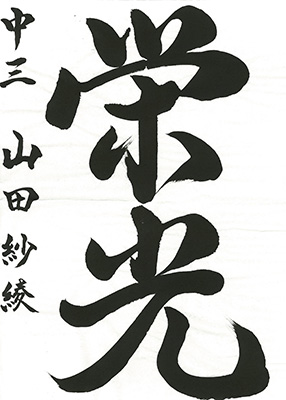 栄光
中三 山田紗綾